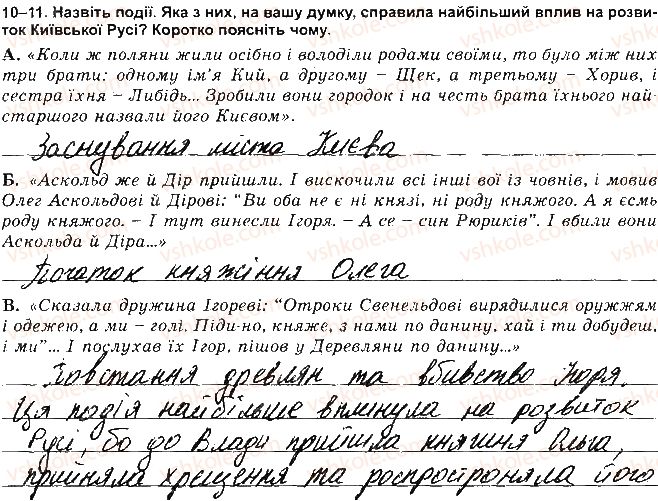 10–11. Назвіть події. Яка з них, на вашу думку, справила найбільший вплив на розви-
ток Київської Русі? Коротко поясніть чому.
А. «Коли ж поляни жили осібно і володіли родами своїми, то було між них
три брати: одному ім'я Кий, а другому – Щек, а третьому – Хорив, і
сестра їхня – Либідь... Зробили вони городок і на честь брата їхнього най-
старшого назвали його Києвом».
Заснування міста Києва
Б. «Аскольд же й Дір прийшли. І вискочили всі інші вої із човнів, і мовив
Олег Аскольдові й Дірові: "Ви оба не є ні князі, ні роду княжого. А я єсмь
роду княжого. – І тут винесли Ігоря. – А се – син Рюриків". І вбили вони
Аскольда й Діра...»
Початок княжіння Олега
В. «Сказала дружина Ігореві: "Отроки Свенельдові вирядилися оружжям
і одежею, а ми – голі. Піди-но, княже, з нами по данину, хай і ти добудеш,
і ми"... І послухав їх Ігор, пішов у Деревляни по данину...»
Повстання древлян та вбивство Ігоря.
Ця подія найбільше вплинула на розвиток
Русі, бо до влади прийшла княгиня Ольга,
прийняла хрещення та роспростроняла його